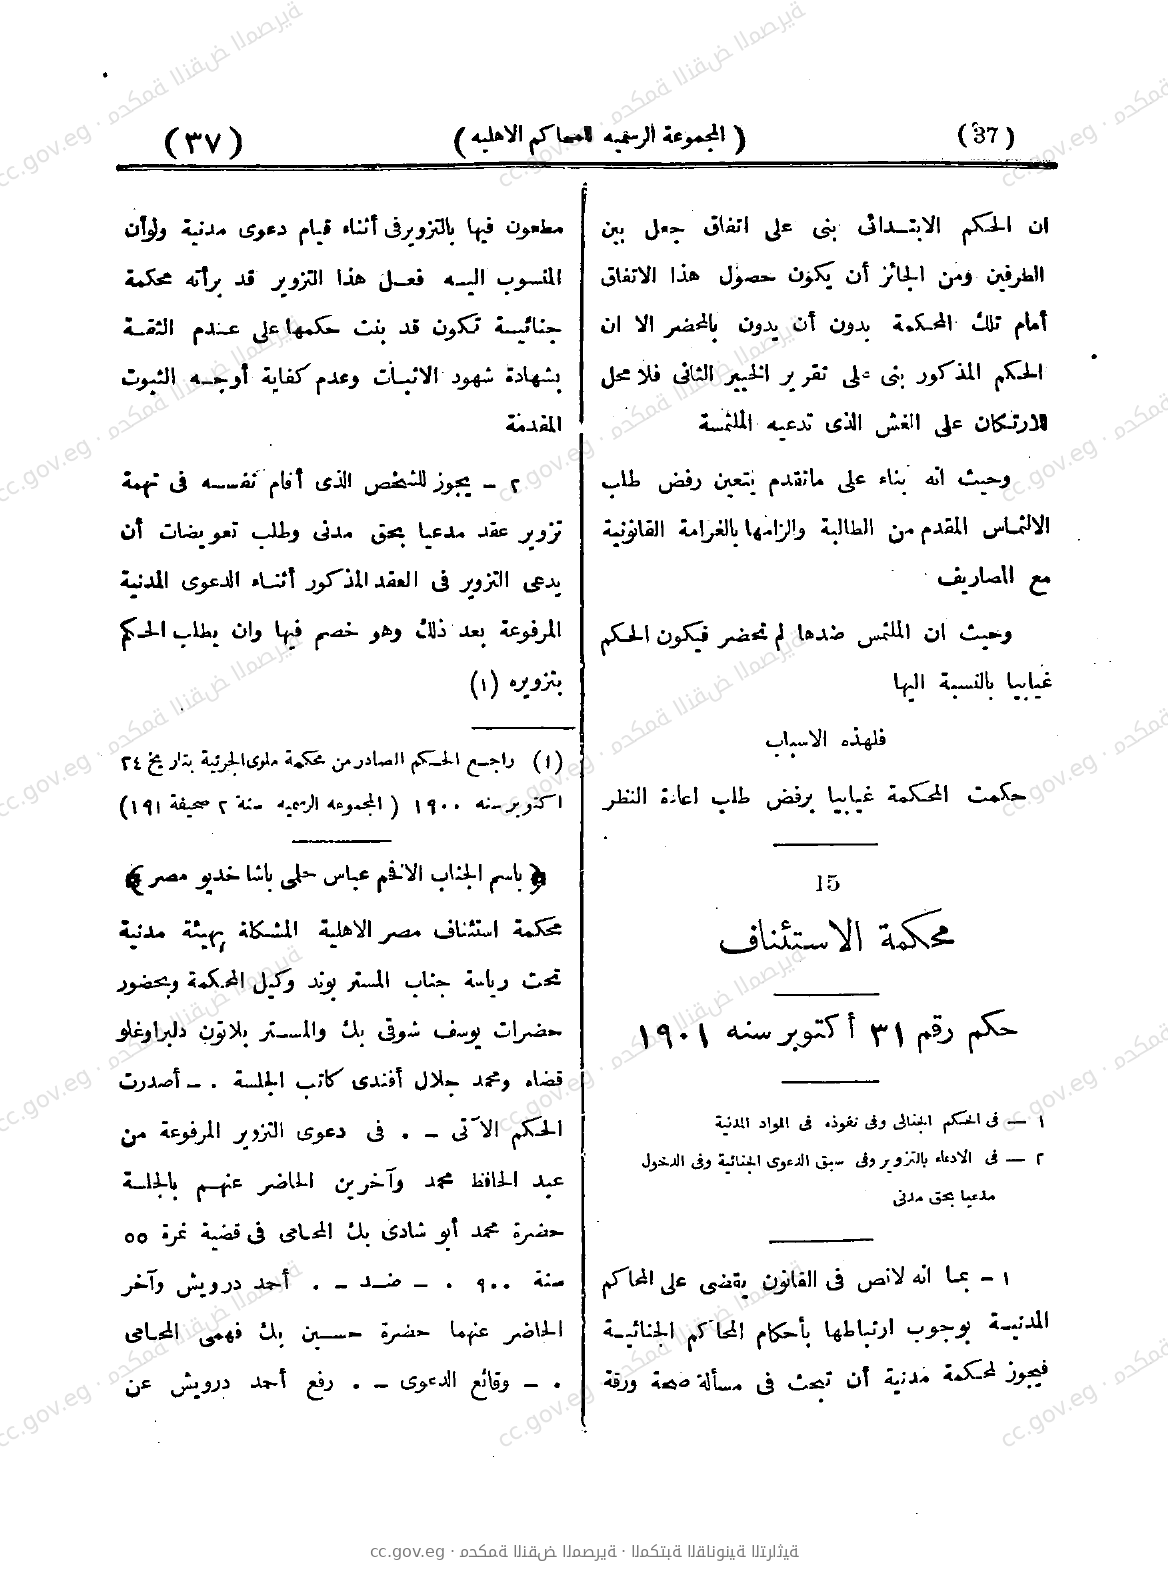 (37) ( المجموعة الرسميه للمحاكم الاهليه ) (٣٧)
ان الحكم الابتدائى بنى على اتفاق جعل بين
الطرفين ومن الجائز أن يكون حصول هذا الاتفاق
أمام تلك المحكمة بدون أن يدون بالمحضر الا ان
الحكم المذكور بنى على تقرير الخبير الثانى فلا محل
للارتكان على الغش الذى تدعيه الملتمسة
وحيث انه بناء على ماتقدم يتعين رفض طلب
الالتماس المقدم من الطالبة والزامها بالغرامة القانونية
مع المصاريف
وحيث ان الملتمس ضدها لم تحضر فيكون الحكم
غيابيا بالنسبة اليها
فلهذه الاسباب
حكمت المحكمة غيابيا برفض طلب اعادة النظر
15
محكمة الاستئناف
حكم رقم ٣١ أكتوبر سنه ١٩٠١
١ — فى الحكم الجنائى وفى نفوذه فى المواد المدنية
٢ — فى الادعاء بالتزوير وفى سبق الدعوى الجنائية وفى الدخول
مدعيا بحق مدنى
١ - بما انه لانص فى القانون يقضى على المحاكم
المدنية بوجوب ارتباطها بأحكام المحاكم الجنائية
فيجوز لمحكمة مدنية أن تبحث فى مسألة صحة ورقة
مطعون فيها بالتزوير فى أثناء قيام دعوى مدنية ولو أن
المنسوب اليه فعل هذا التزوير قد برأته محكمة
جنائية تكون قد بنت حكمها على عدم الثقة
بشهادة شهود الاثبات وعدم كفاية أوجه الثبوت
المقدمة
٢ - يجوز للشخص الذى أقام نفسه فى تهمة
تزوير عقد مدعيا بحق مدنى وطلب تعويضات أن
يدعى التزوير فى العقد المذكور أثناء الدعوى المدنية
المرفوعة بعد ذلك وهو خصم فيها وان يطلب الحكم
بتزويره (١)
(١) راجع الحكم الصادر من محكمة ملوى الجزئية بتاريخ ٢٤
اكتوبر سنه ١٩٠٠ ( المجموعه الرسميه سنة ٢ صحيفة ١٩١)
﴿ باسم الجناب الافخم عباس حلمى باشا خديو مصر ﴾
محكمة استئناف مصر الاهلية المشكلة بهيئة مدنية
تحت رياسة جناب المستر بوند وكيل المحكمة وبحضور
حضرات يوسف شوقى بك والمستر بلاتون دلبراوغلو
قضاه ومحمد جلال أفندى كاتب الجلسة . - أصدرت
الحكم الآتى - . فى دعوى التزوير المرفوعة من
عبد الحافظ محمد وآخرين الحاضر عنهم بالجلسة
حضرة محمد أبو شادى بك المحامى فى قضية نمرة ٥٥
سنة ٩٠٠ . - ضد - . أحمد درويش وآخر
الحاضر عنهما حضرة حسين بك فهمى المحامى
. - وقائع الدعوى - . رفع أحمد درويش عن
cc.gov.eg · محكمة النقض المصرية · المكتبة القانونية التراثية